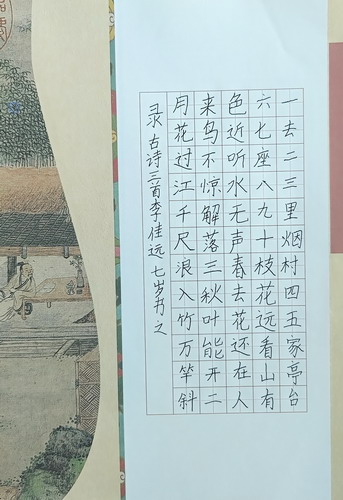 一去二三里烟村四五家亭台
六七座八九十枝花远看山有
色近听水无声春去花还在人
来鸟不惊解落三秋叶能开二
月花过江千尺浪入竹万竿斜
录古诗三首李佳远七岁书之